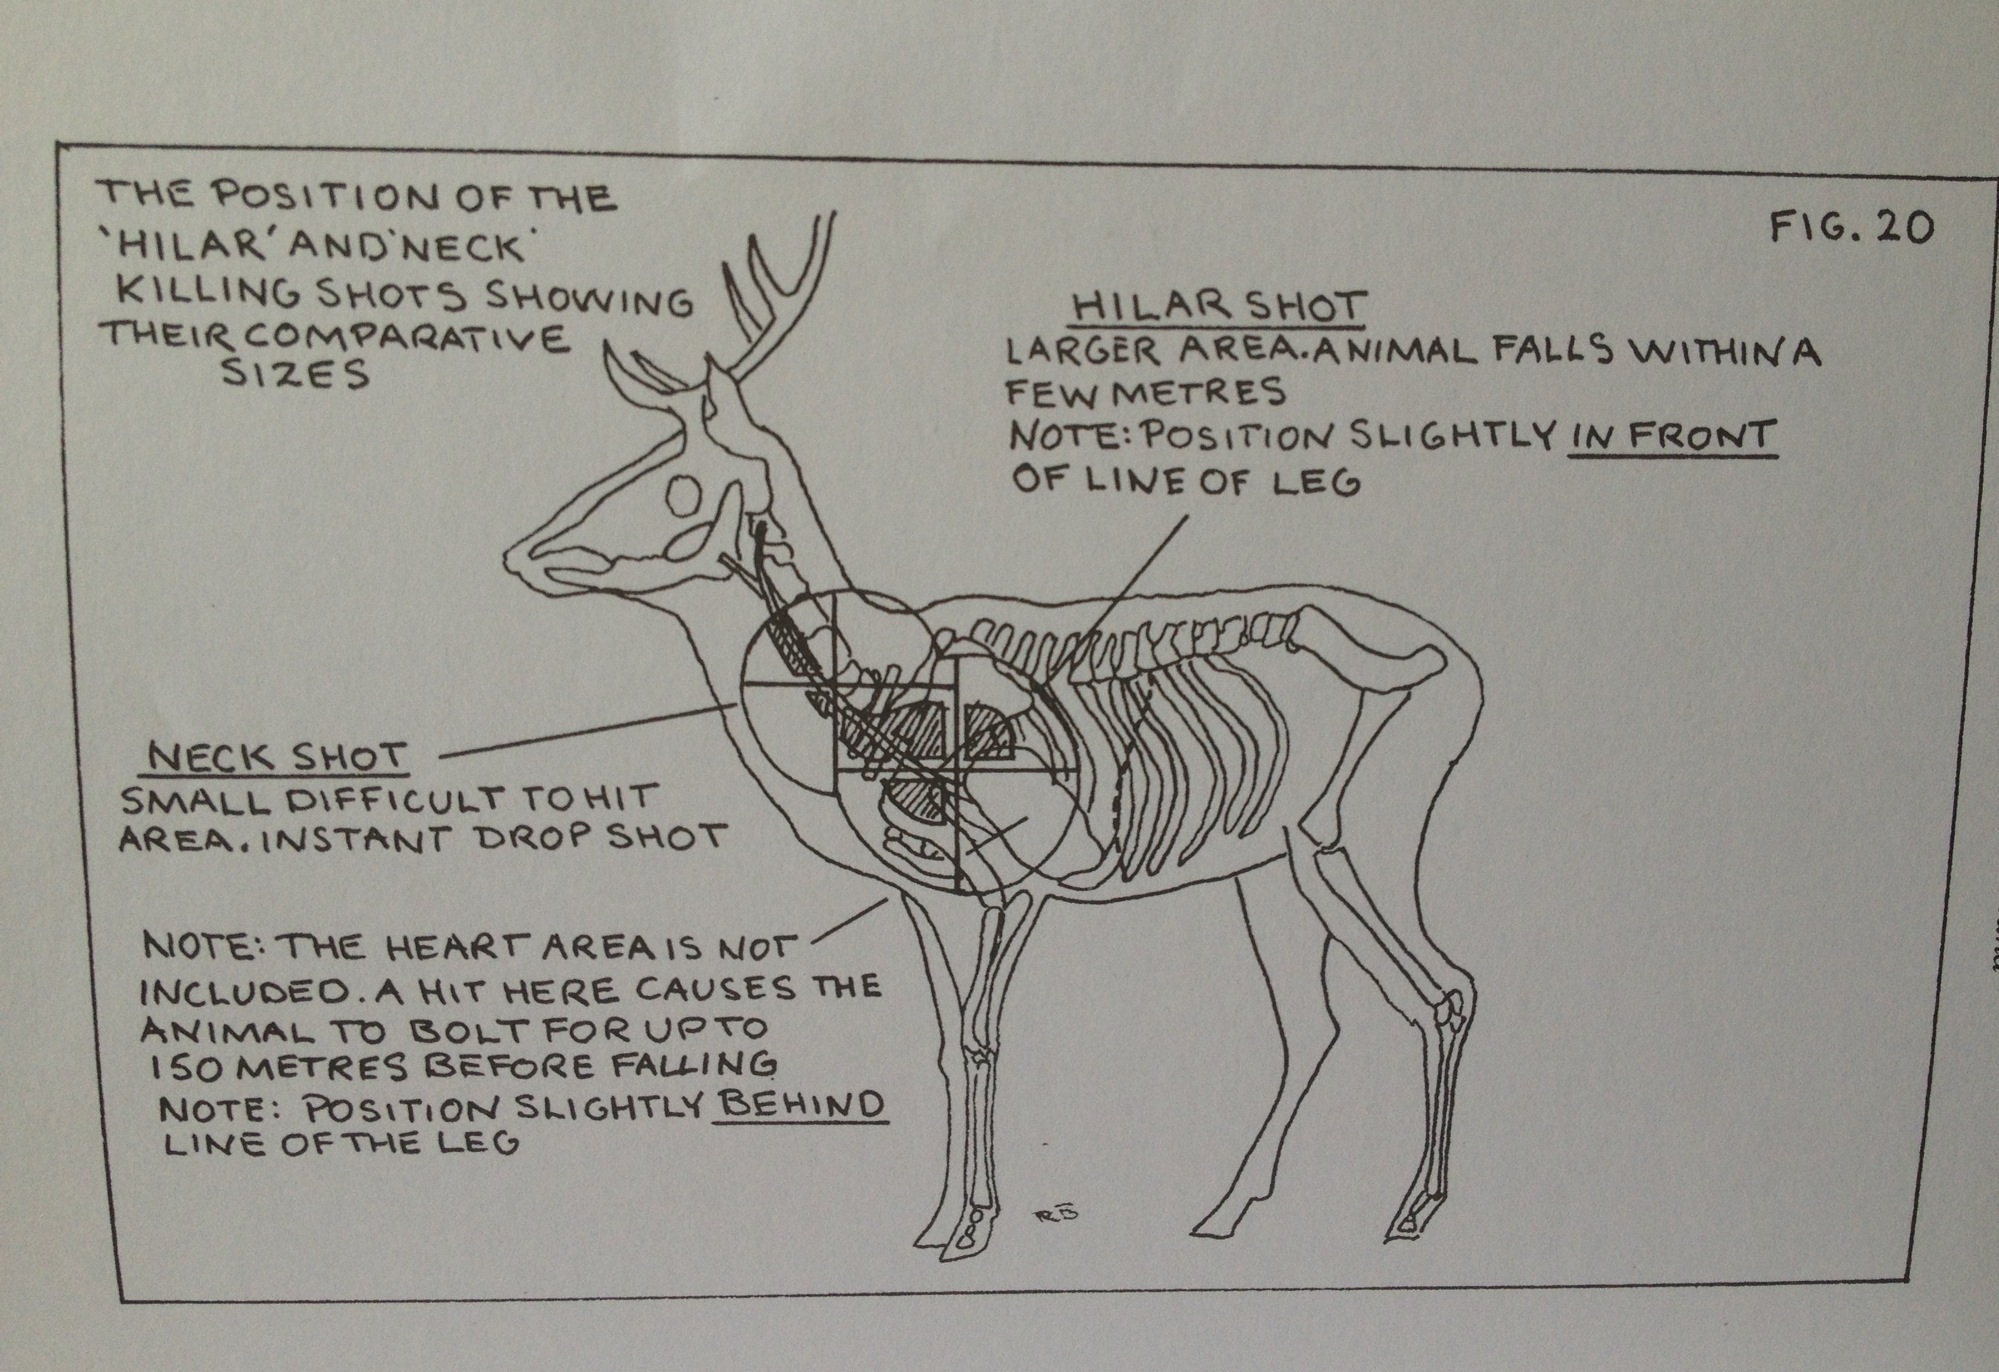 THE POSITION OF THE
'HILAR' AND 'NECK'
KILLING SHOTS SHOWING
THEIR COMPARATIVE
SIZES
FIG. 20
HILAR SHOT
LARGER AREA. ANIMAL FALLS WITHIN A
FEW METRES
NOTE: POSITION SLIGHTLY IN FRONT
OF LINE OF LEG
NECK SHOT
SMALL DIFFICULT TO HIT
AREA. INSTANT DROP SHOT
NOTE: THE HEART AREA IS NOT
INCLUDED. A HIT HERE CAUSES THE
ANIMAL TO BOLT FOR UP TO
150 METRES BEFORE FALLING
NOTE: POSITION SLIGHTLY BEHIND
LINE OF THE LEG